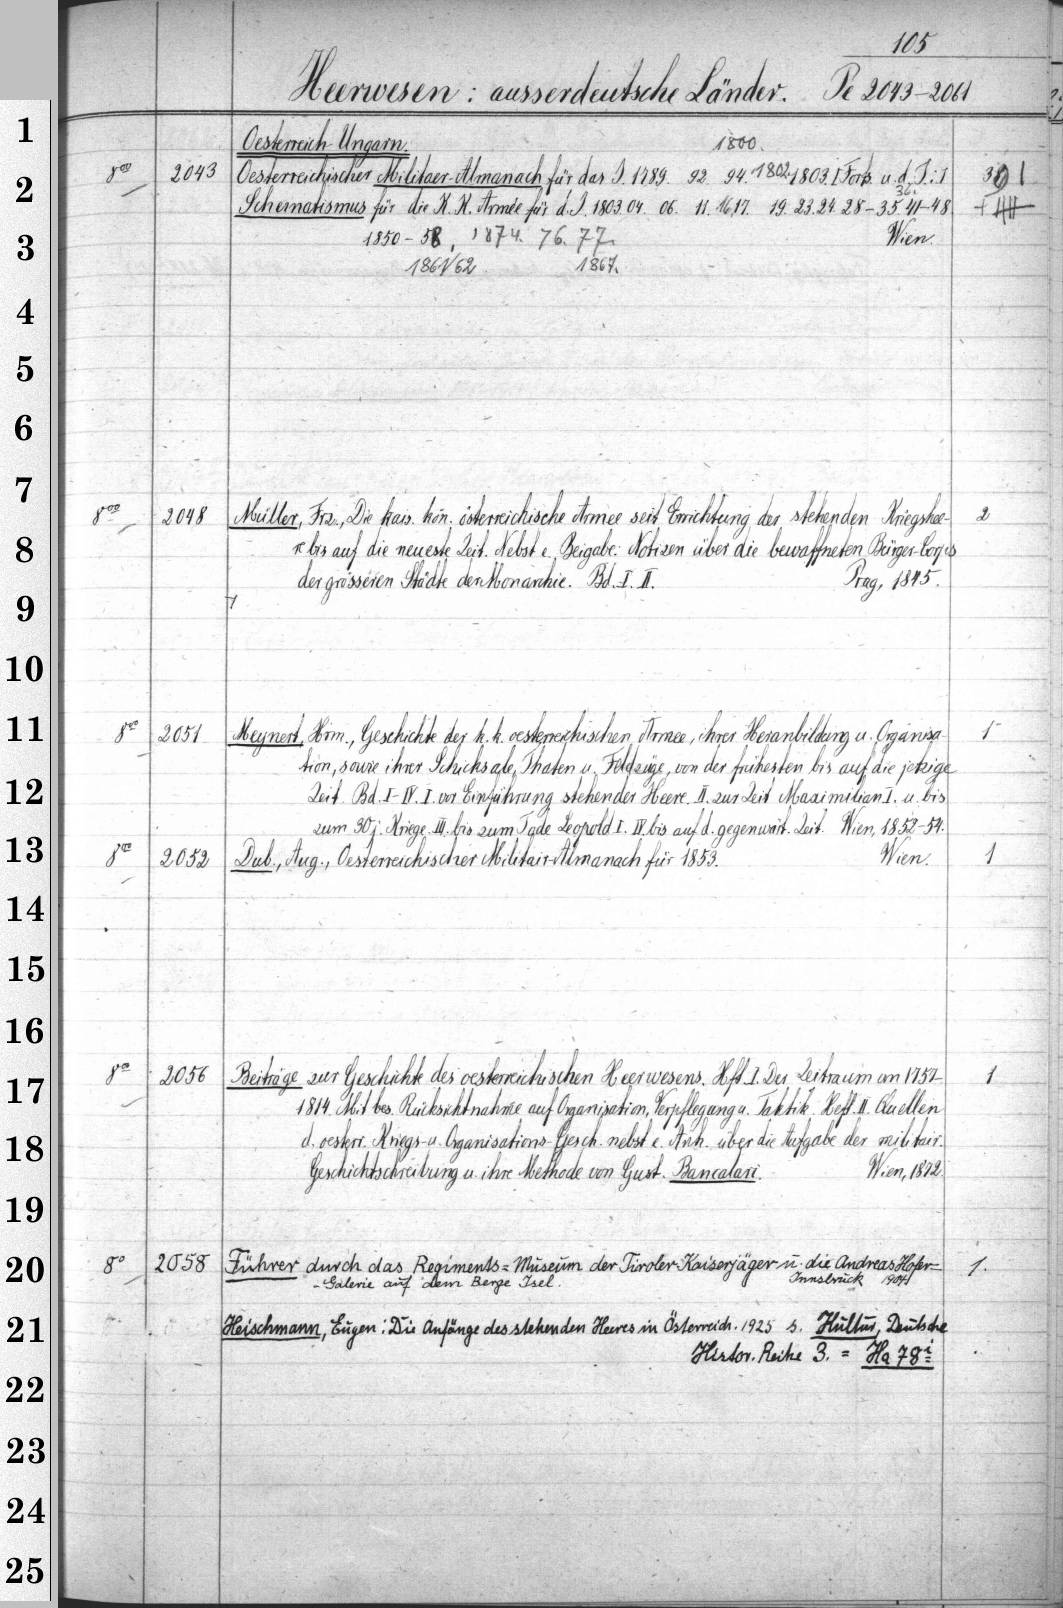 105
Heerwesen: ausserdeutsche Länder. Pe 2043-2061
1
Oesterreich-Ungarn. 1800.
8vo 2043 Oesterreichischer Militaer-Almanach für das J. 1789. 92. 94. 1802. 1803. I Forts. u. d. T.: 1
2
36.
Schematismus für die K. K. Armée für d. J. 1803. 04. 06. 11. 16. 17. 19. 23. 24. 28-35. 41-48.
3
1850-58, 1874. 76. 77. Wien.
1861/62 1867.
4
5
6
7
8vo 2048 Müller, Frz., Die kais. kön. österreichische Armee seit Errichtung der stehenden Kriegshee- 2
8
re bis auf die neueste Zeit. Nebst e. Beigabe: Notizen über die bewaffneten Bürger-Corps
der grösseren Städte der Monarchie. Bd. I. II. Prag, 1845.
9
10
11
8vo 2051 Meynert, Hrm., Geschichte der k. k. oesterreichischen Armee, ihrer Heranbildung u. Organisa-
tion, sowie ihrer Schicksale, Thaten u. Feldzüge, von der frühesten bis auf die jetzige
12
Zeit. Bd. I-IV. I. vor Einführung stehender Heere. II. zur Zeit Maximilian I. u. bis
zum 30j. Kriege. III. bis zum Tode Leopold I. IV. bis auf d. gegenwärt. Zeit. Wien, 1852-54.
13
8vo 2052 Dub., Aug., Oesterreichischer Militair-Almanach für 1853. Wien. 1
14
15
16
17
8vo 2056 Beiträge zur Geschichte des oesterreichischen Heerwesens. Hft. I. Der Zeitraum von 1757- 1
1814. Mit bes. Rücksichtnahme auf Organisation, Verpflegung u. Taktik. Heft II. Quellen
18
d. oesterr. Kriegs- u. Organisations-Gesch. nebst e. Anh. über die Aufgabe der militair.
Geschichtschreibung u. ihre Methode von Gust. Bancalari. Wien, 1872.
19
20
8° 2058 Führer durch das Regiments-Museum der Tiroler Kaiserjäger u. die Andreas Hofer- 1.
-Galerie auf dem Berge Isel. Innsbruck 1904
21
Heischmann, Eugen: Die Anfänge des stehenden Heeres in Österreich. 1925 s. Kultur, Deutsche
Histor. Reihe 3. = Ha 78i
22
23
24
25